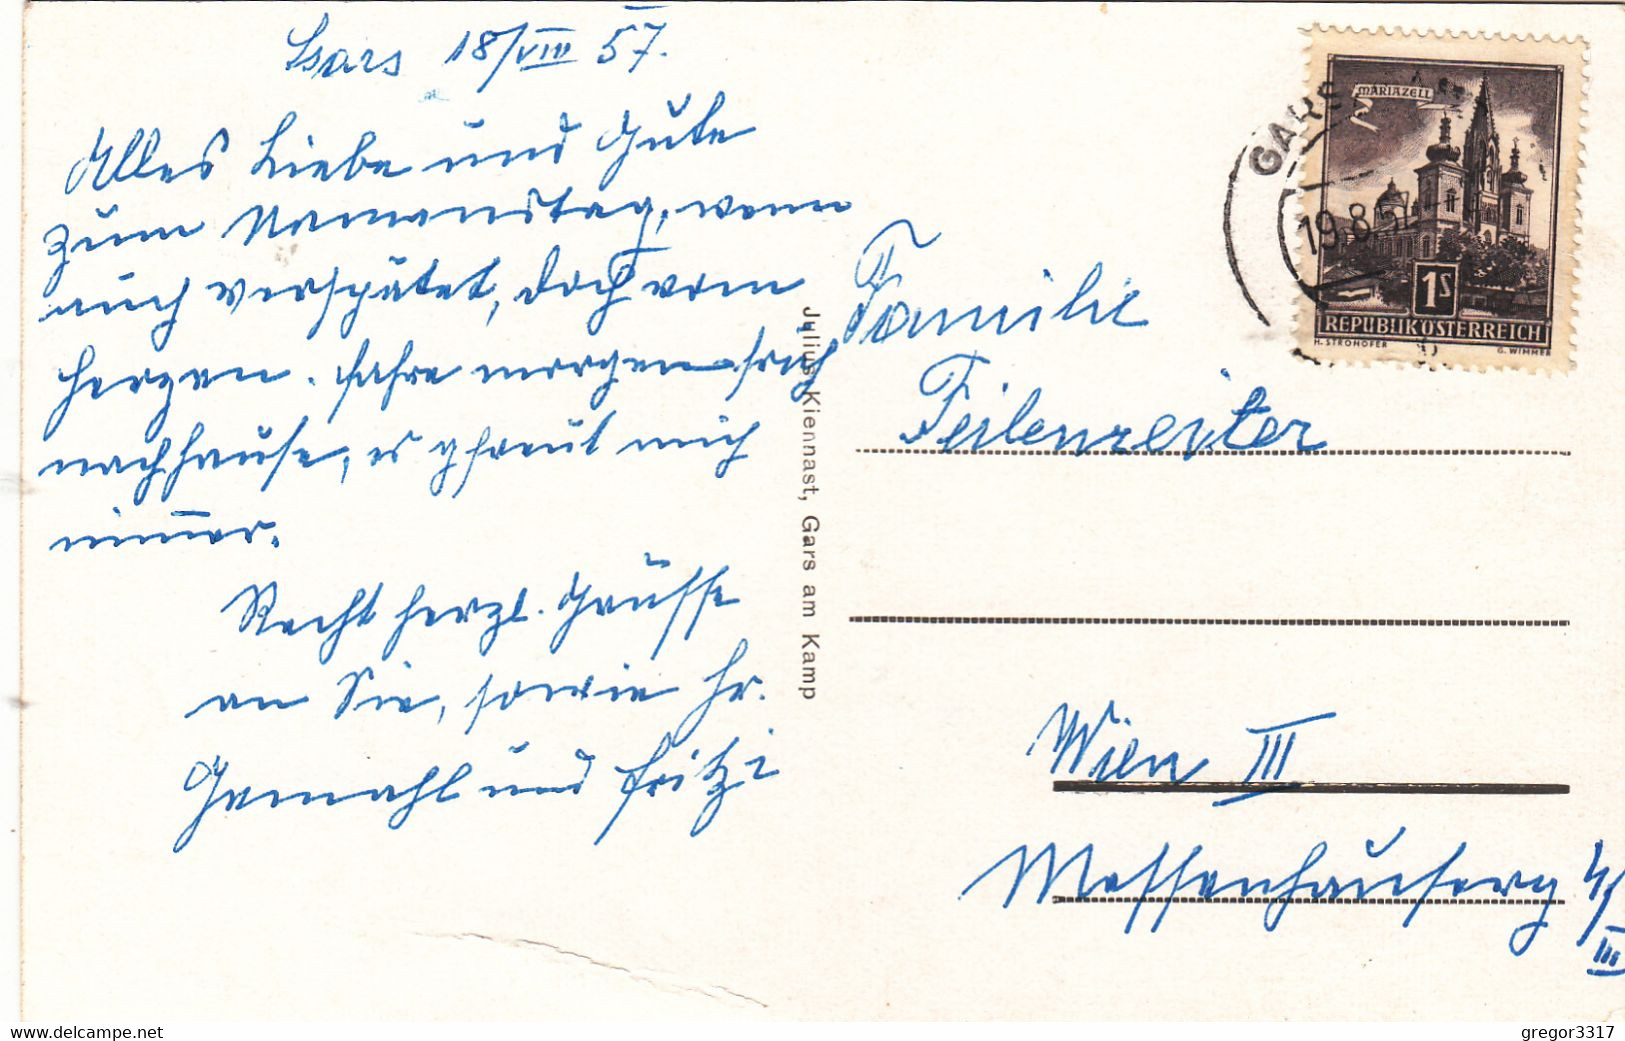 Gars 18/VIII 57.
Alles Liebe und Gute
zum Namenstag, wenn
auch verspätet, doch vom
Herzen. Fahre morgen früh
nachhause, es gfreut mich
nimmer.
Recht herzl. Grüsse
an Sie, sowie Hr.
Gemahl und Fritzi
Julius Kiennast, Gars am Kamp
GARS
19.8.57
MARIAZELL
1S
REPUBLIK ÖSTERREICH
H. STROHOFER G. WIMMER
Familie
Feilenreiter
Wien III
Messenhauserg 4/
III
www.delcampe.net
gregor3317